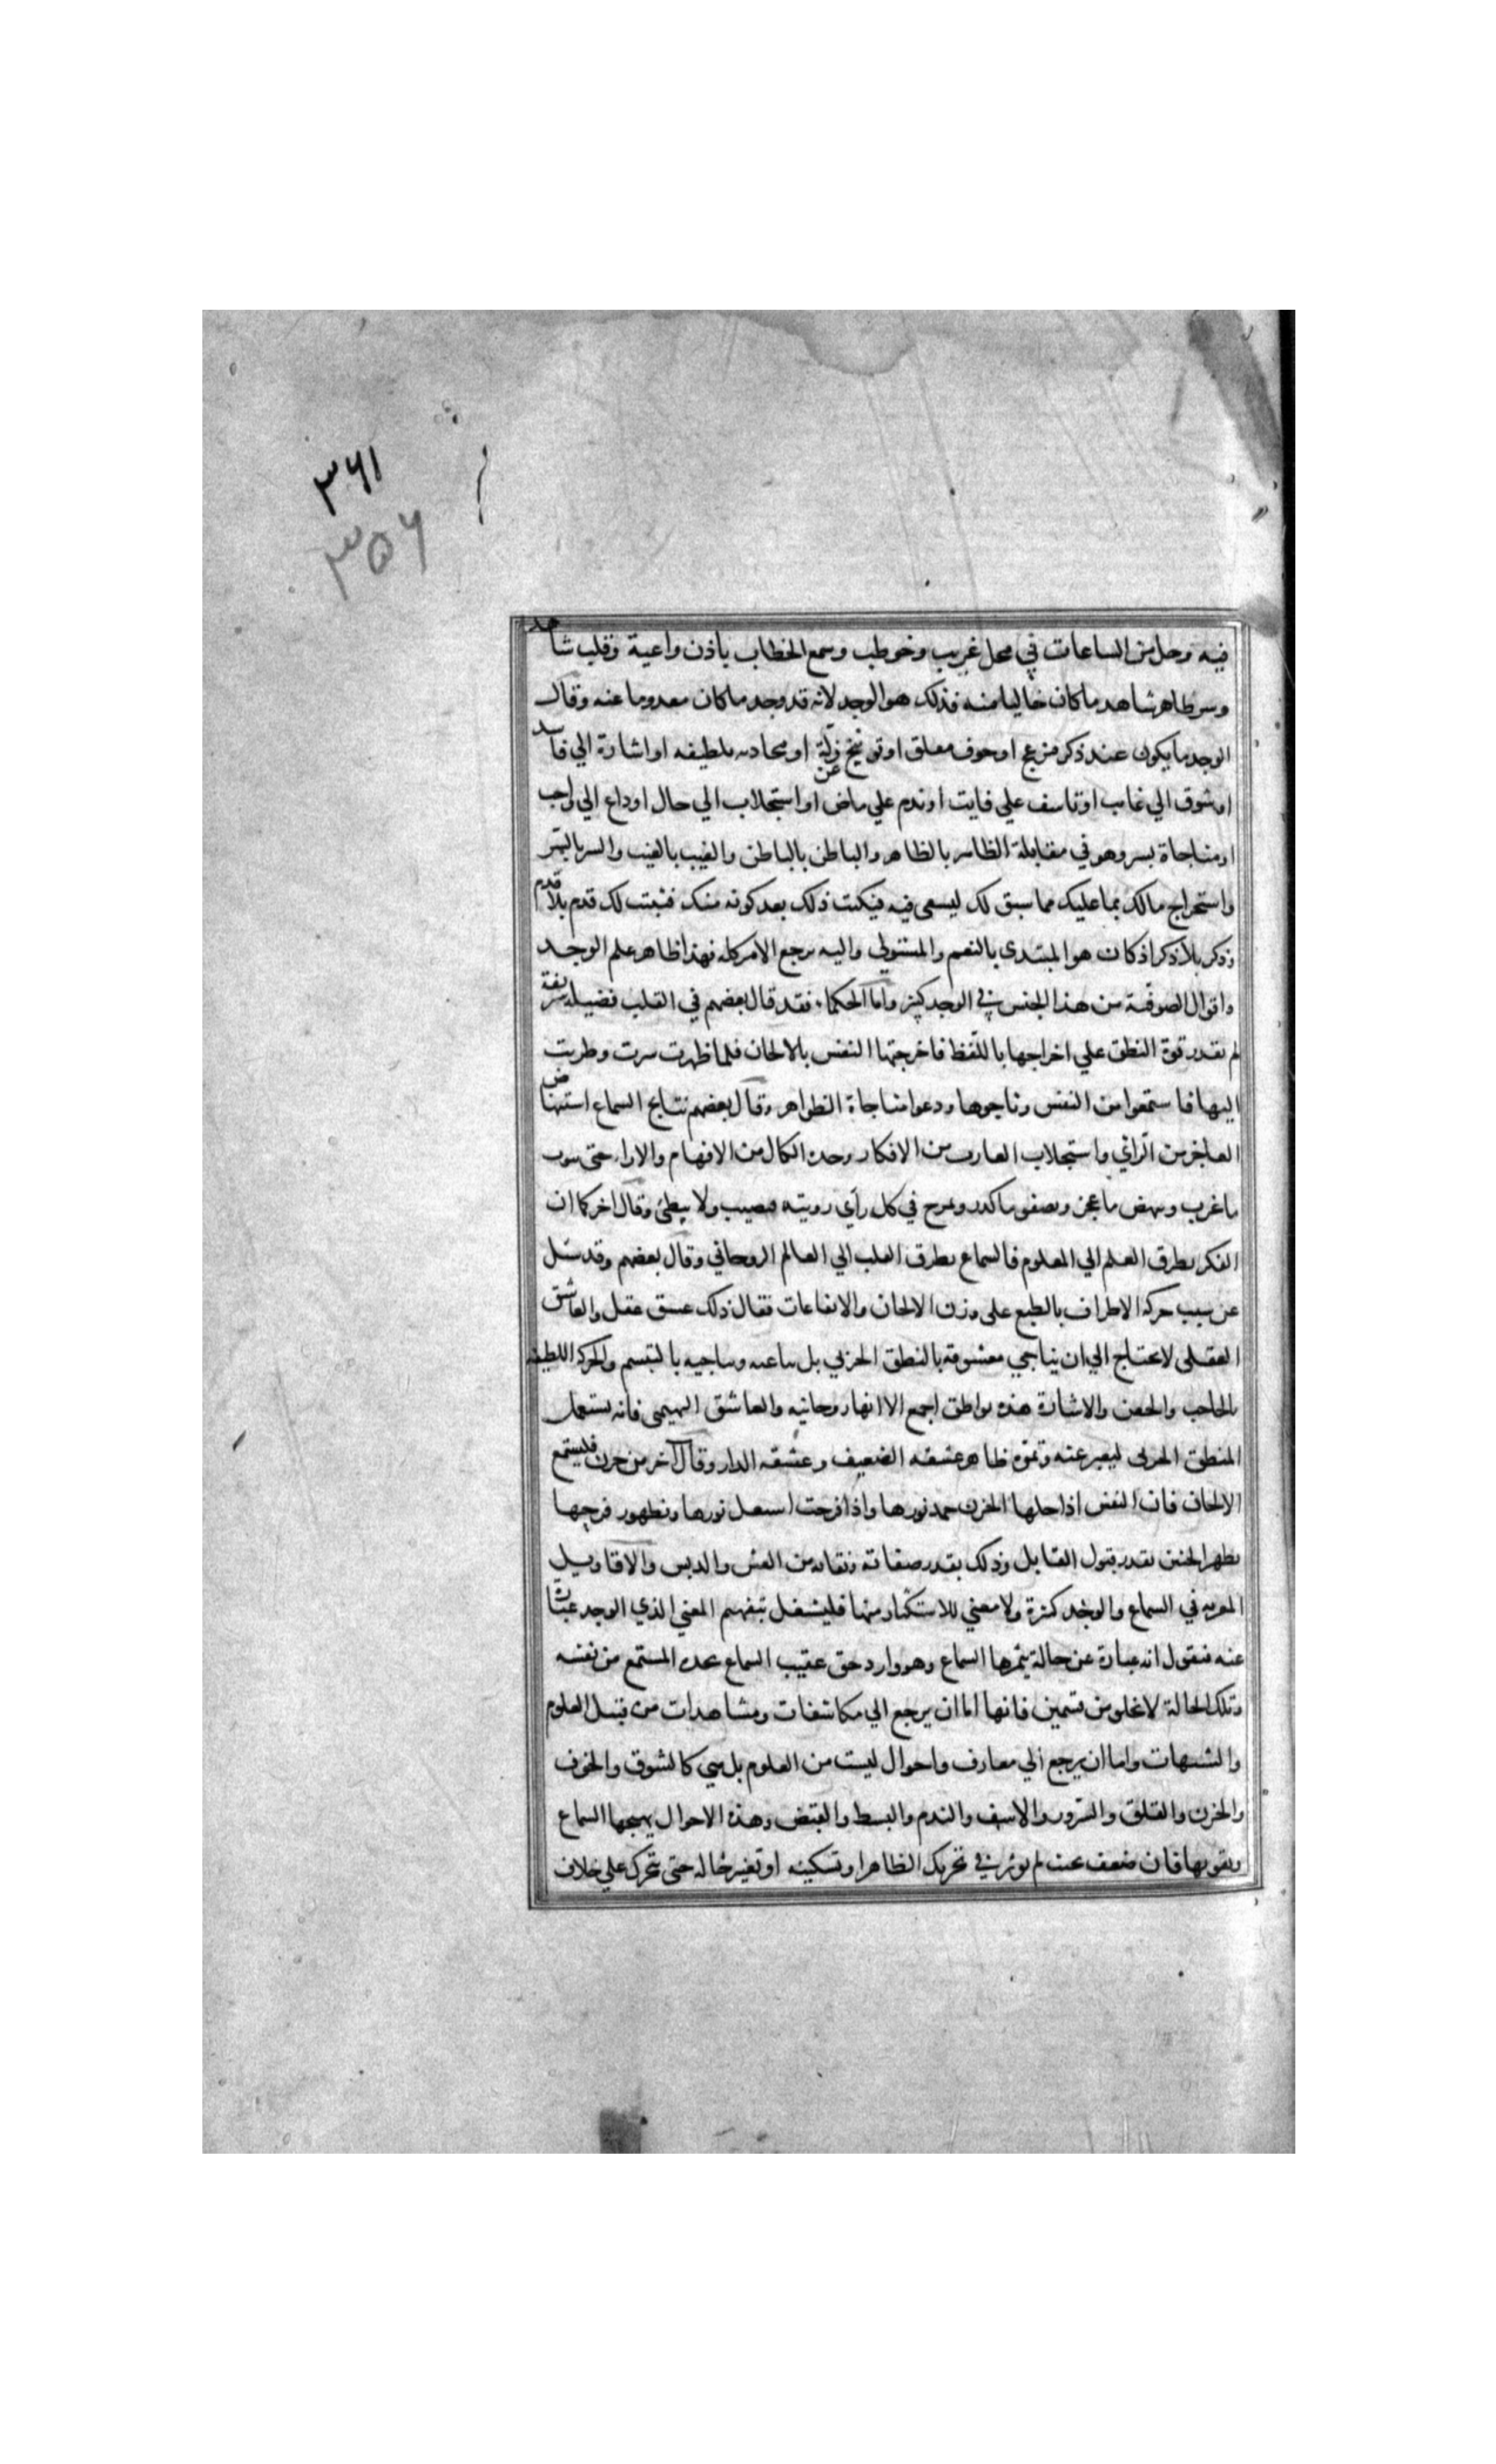 ۳۶۱
۳۵۶
فيه وحل من الساعات في محل غريب وخوطب وسمع الخطاب باذن واعية وقلب شاهد
وسر ظاهر شاهد ما كان خاليا منه فذلك هو الوجد لانه قد وجد ما كان معدوما عنه وقال
الوجد ما يكون عند ذكر مزعج او خوف مقلق او توبيخ عن زلة او محادثه بلطيفه او اشارة الي فايده
او شوق الي غايب او تاسف علي فايت او ندم علي ماض او استجلاب الي حال او داع الي واجب
او مناجاة بسر وهو في مقابلة الظاهر بالظاهر والباطن بالباطن والغيب بالغيب والسر بالسر
واستخراج مالك بما عليك مما سبق لك ليسعى فيه فيكتب ذلك بعد كونه منك فيثبت لك قدم بلا قدم
وذكر بلا ذكر اذ كان هو المبتدى بالنعم والمتولي واليه يرجع الامر كله فهذا ظاهر علم الوجد
واقوال الصوفية من هذا الجنس في الوجد كثير واما الحكماء فقد قال بعضهم في القلب فضيله شريفة
لم يقدر قوة النطق علي اخراجها باللفظ فاخرجتها النفس بالالحان فلما ظهرت سرت وطربت
اليها فاستمعوا من النفس وناجوها ودعوا مناجاة الظواهر وقال بعضهم نتايج السماع استنهاض
العاجز من الراي واستجلاب العازب من الافكار وحده الكال من الافهام والاراء حتى يثوب
ما غرب وينهض ما عجز ويصفو ما كدر ويمرح في كل رأي رويته فيصيب ولا يبطئ وقال اخر كما ان
الفكر يطرق العلم الي المعلوم فالسماع يطرق القلب الي العالم الروحاني وقال بعضهم وقد سئل
عن سبب حركة الاطراف بالطبع على وزن الالحان والايقاعات فقال ذلك عشق عقلي والعاشق
العقلى لا يحتاج الي ان يناجي معشوقه بالنطق الجزئي بل يناغيه ويناجيه بالتبسم والحركة اللطيفه
بالحاجب والجفن والاشارة هذه نواطق اجمع الا انها روحانيه والعاشق البهيمى فانه يستعمل
المنطق الجزئي ليعبر عنه وثمرة ظاهر عشقه الضعيف وعشقه الدار وقال آخر من حزن فليستمع
الالحان فان النفس اذا دخلها الحزن خمد نورها واذا فرحت اشتعل نورها وبظهور فرحها
يظهر الحنين بقدر قبول القابل وذلك بقدر صفائه ونقائه من الغش والدنس والاقاويل
المعربه في السماع والوجد كثيرة ولا معني للاستكثار منها فليشغل بتفهم المعني الذي الوجد عبارة
عنه فنقول انه عبارة عن حالة يثمرها السماع وهو وارد حق عقيب السماع يجده المستمع من نفسه
وتلك الحالة لا تخلو من قسمين فانها اما ان يرجع الي مكاشفات ومشاهدات من قبيل العلوم
والتنبيهات واما ان يرجع الي معارف واحوال ليست من العلوم بل هي كالشوق والخوف
والحزن والقلق والسرور والاسف والندم والبسط والقبض وهذه الاحوال يهيجها السماع
ويقويها فان ضعف بحيث لم يوثر في تحريك الظاهر او تسكينه او تغير حاله حتى يتحرك علي خلاف